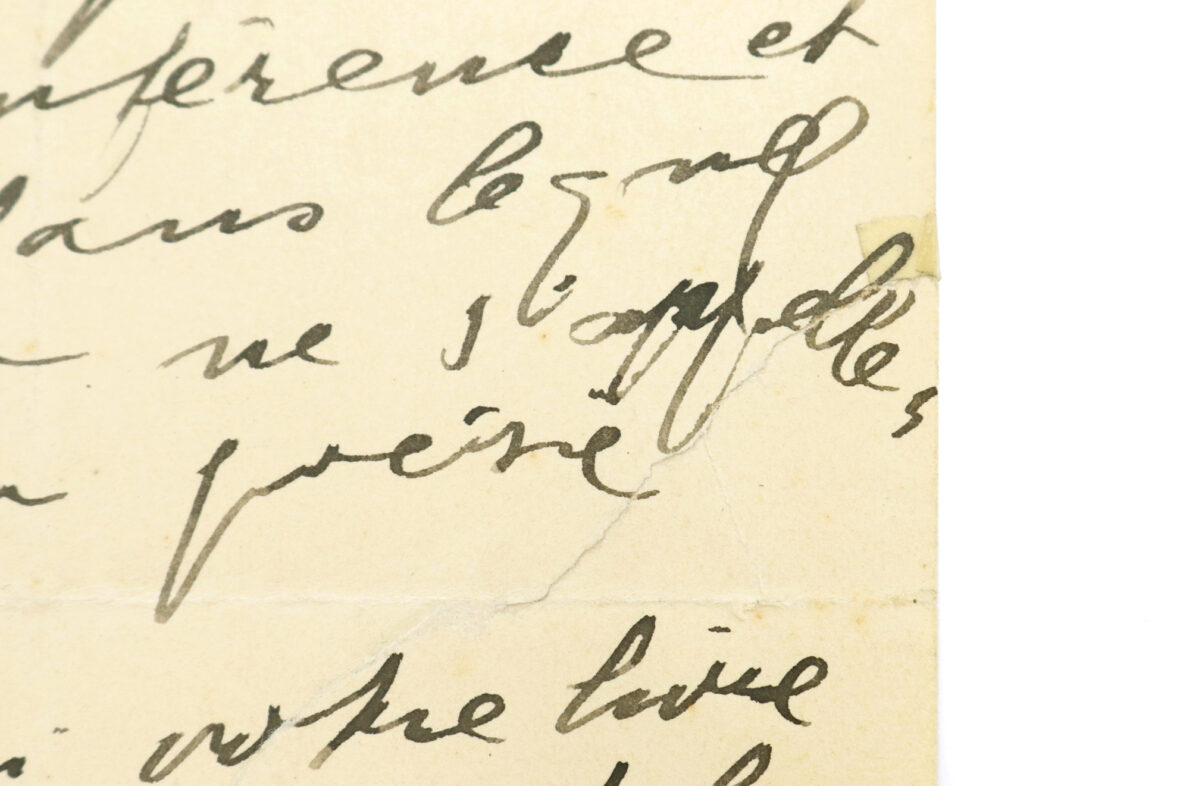 nférence et
dans lequel
ne s'appelle,
poésie
votre livre